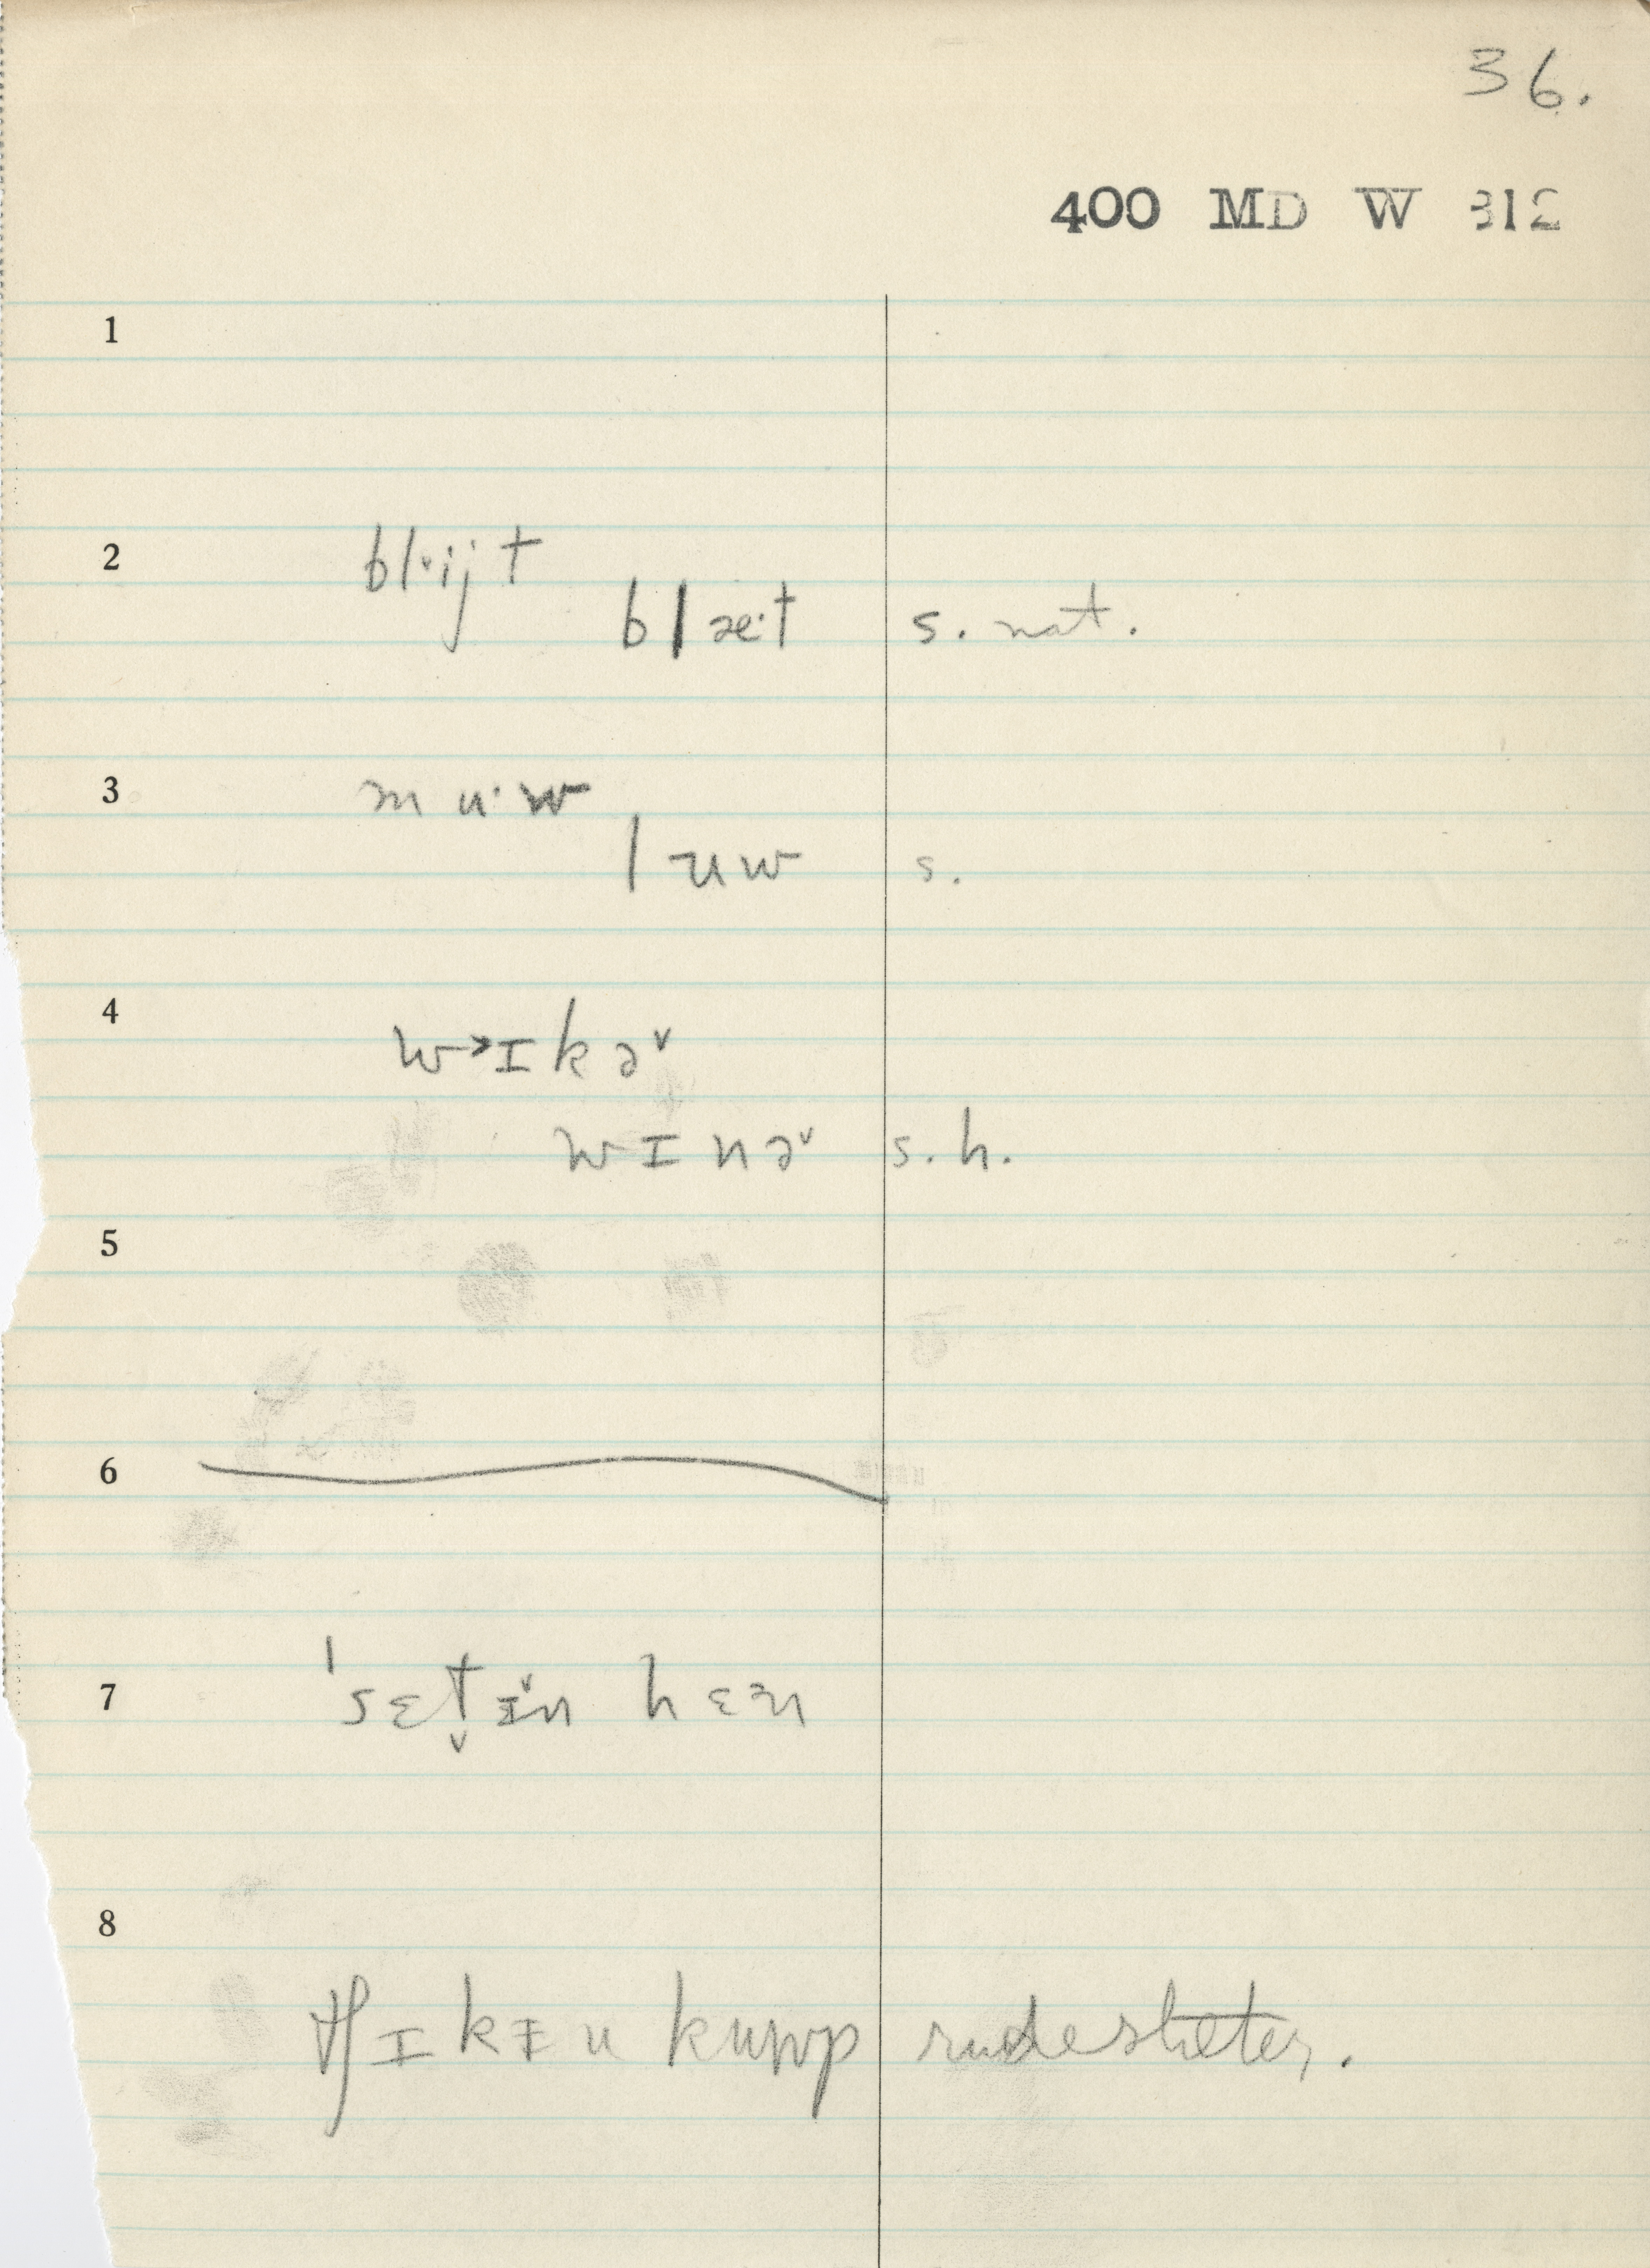 36.
400 MD W 312
1
2
bl˅·ijt
blæ·t s. nat.
3
mu·w
lʉw s.
4
w→ɪkə˅
wɪnə˅ s. h.
5
6
7
ˈsɛt̬ɪ̌n hɛɜn
8
tʃɪkɪ̵n kuwp rude shelter.